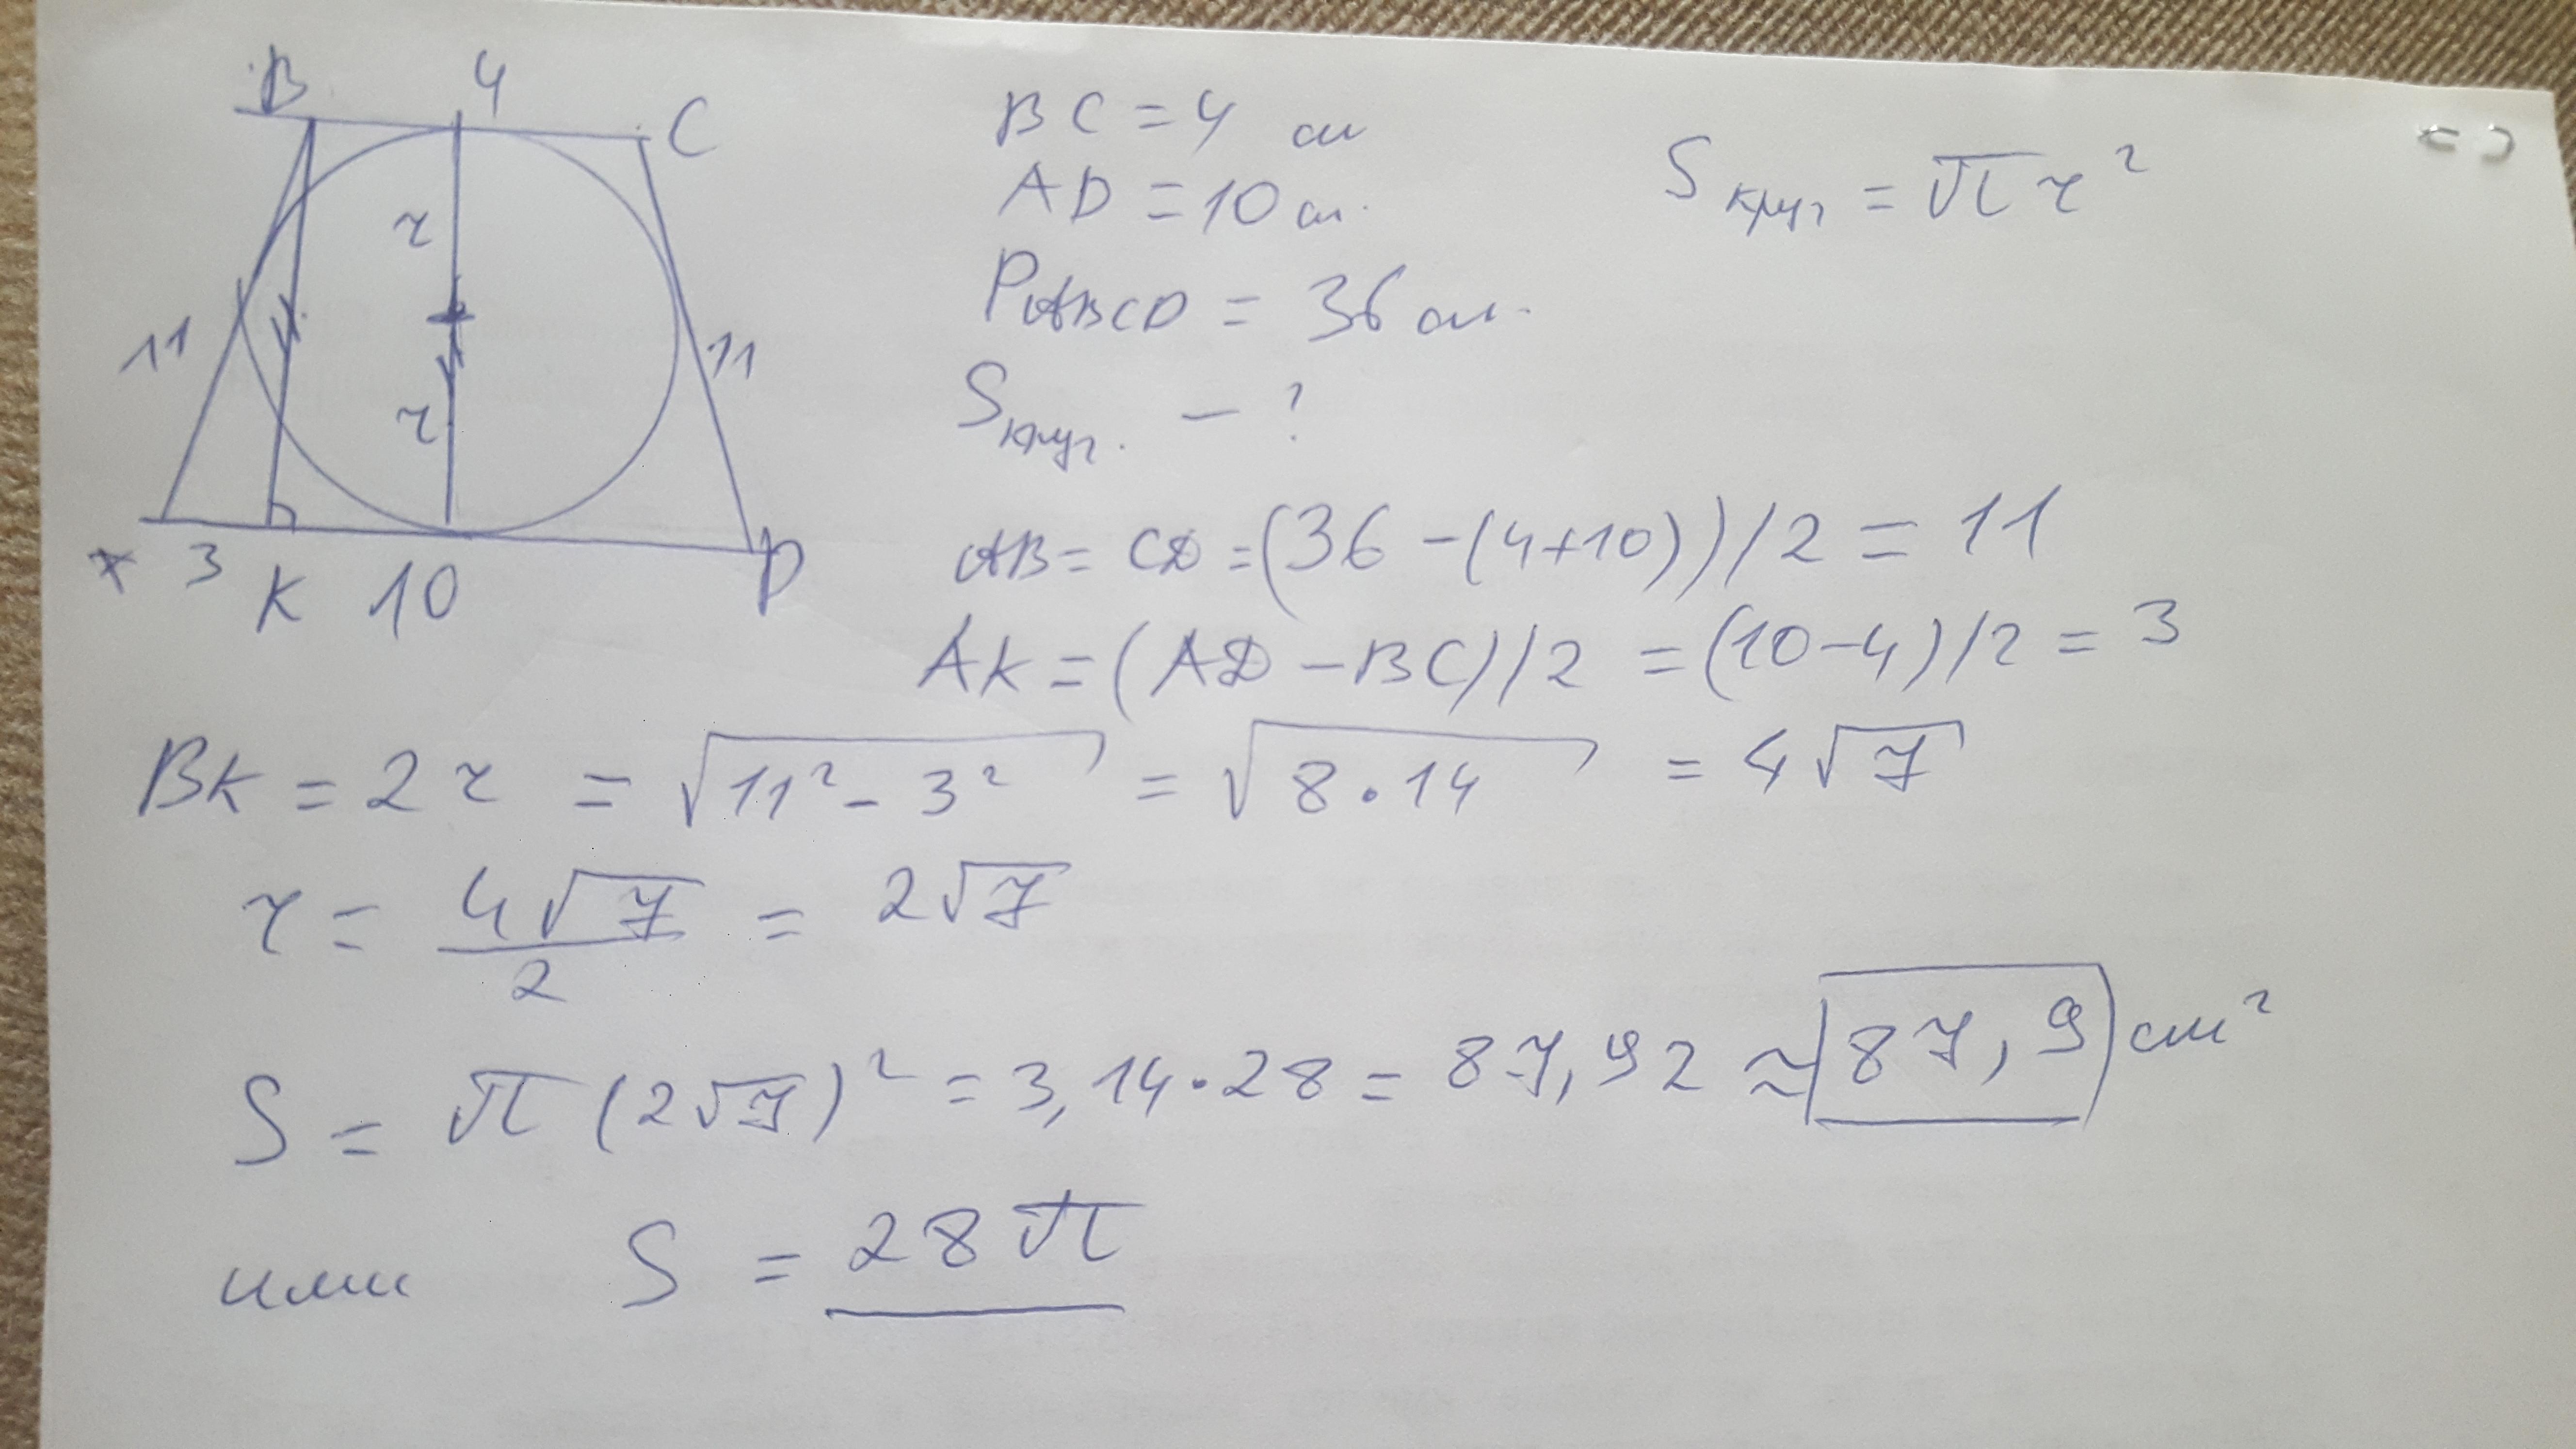 B 4 C
BC = 4 см
AD = 10 см.
P ABCD = 36 см.
S круг. - ?
S круг = πr²
r
11 11
r
3 K 10 D
AB = CD = (36 - (4+10))/2 = 11
AK = (AD - BC)/2 = (10-4)/2 = 3
BK = 2r = √(11² - 3²) = √(8·14) = 4√7
r = 4√7/2 = 2√7
S = π(2√7)² = 3,14·28 = 87,92 ≈ 87,9 см²
или S = 28π